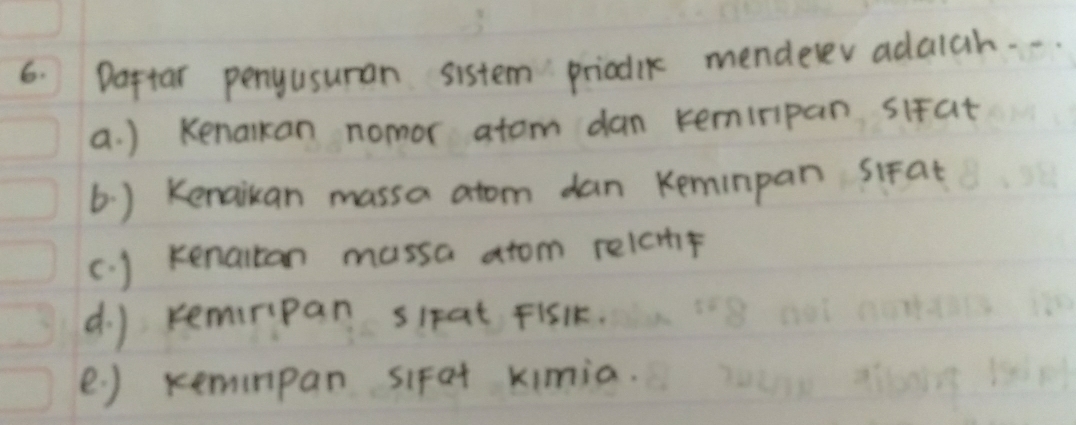 6. Daftar penyusuran sistem priodik mendelev adalah ....
a.) Kenaikan nomor atom dan kemiripan sifat
b.) Kenaikan massa atom dan kemiripan sifat
c.) Kenaikan massa atom relatif
d.) Kemiripan sifat fisik.
e.) Kemiripan sifat kimia.